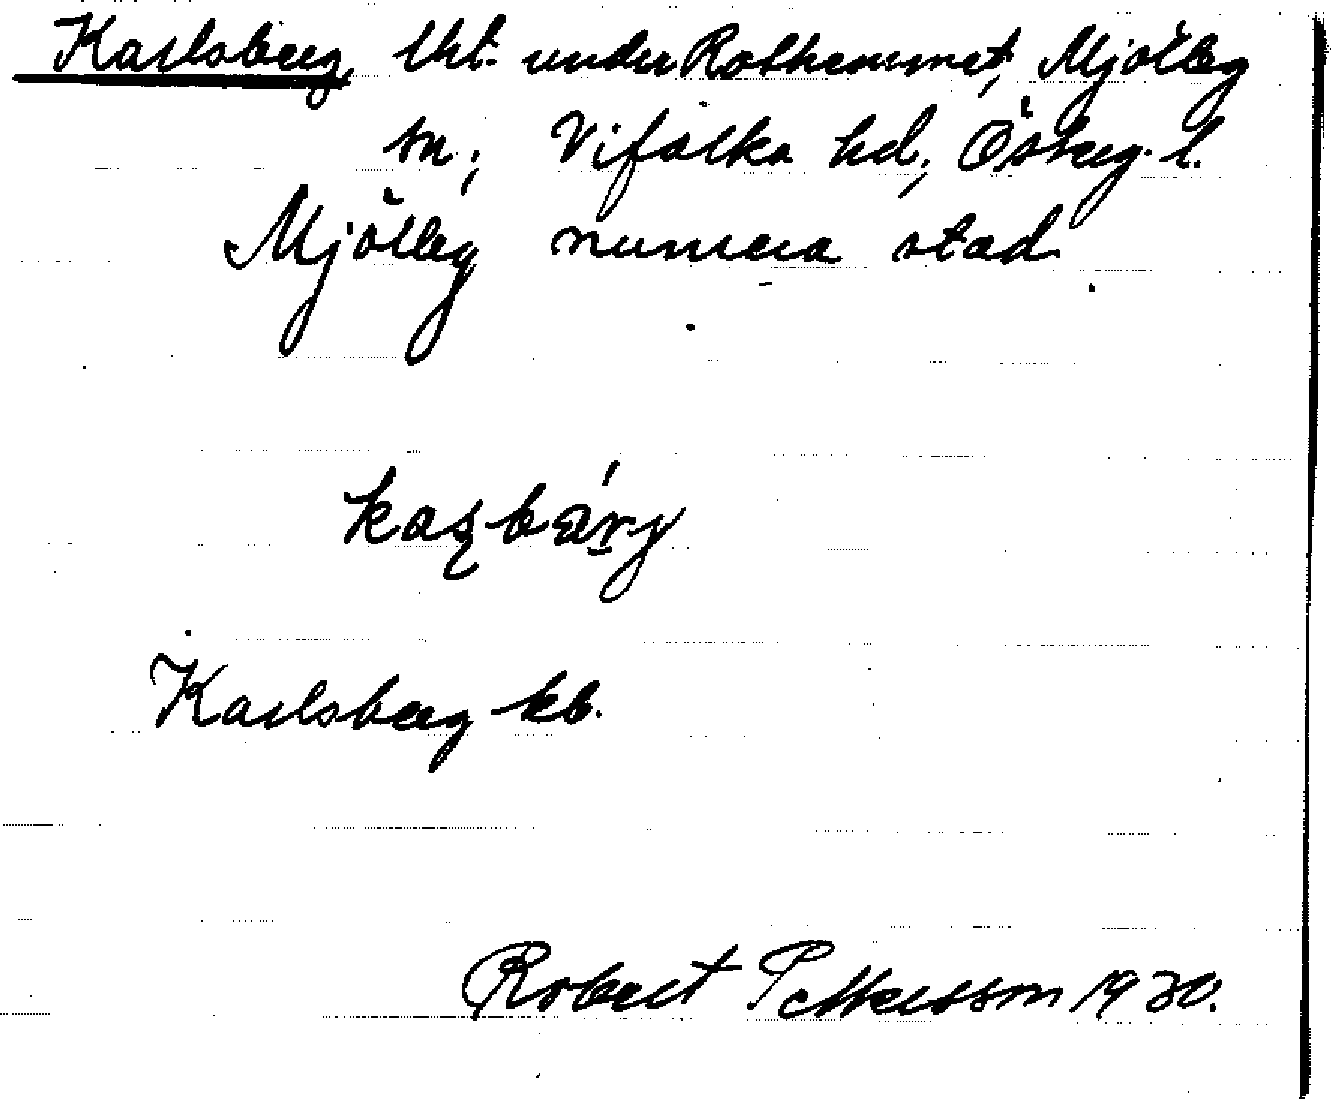 Karlsberg, lht. under Rothemmet, Mjölby
sn, Vifolka hd, Österg. l.
Mjölby numera stad
Karlsberg kb.
Robert Pettersson 1930.